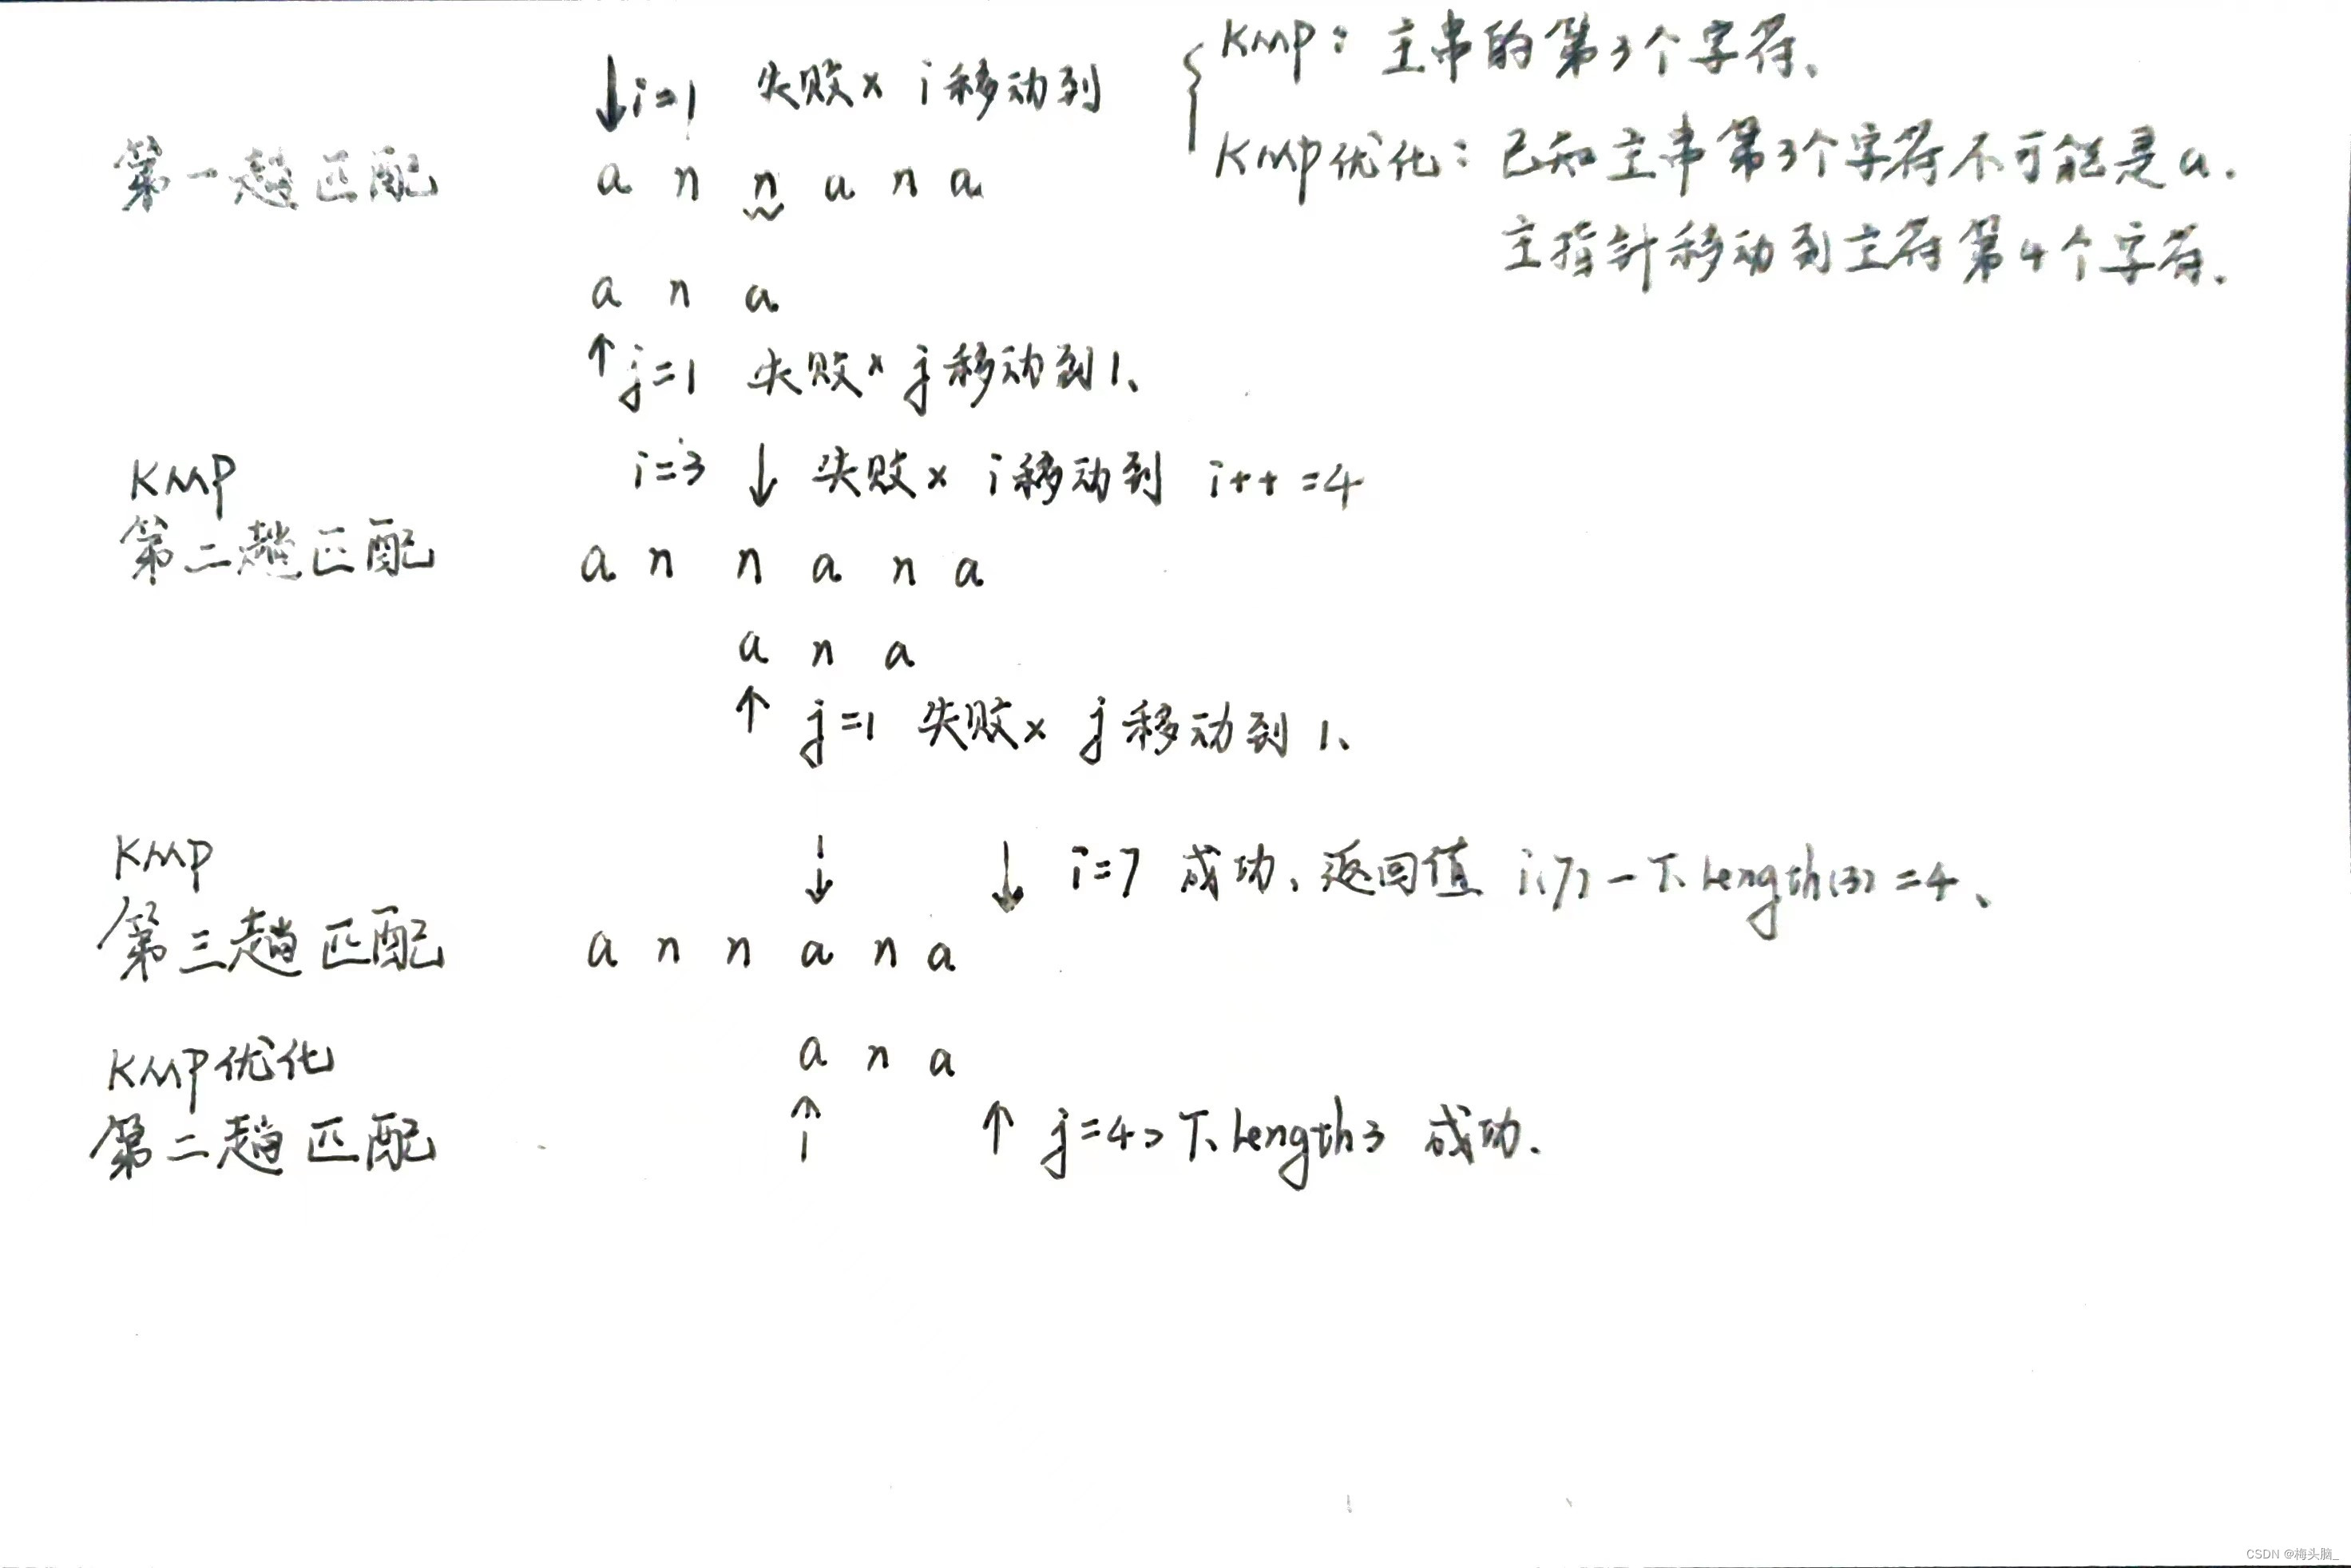 KMP：主串的第3个字符、
↓i=1 失败× i移动到
KMP优化：已知主串第3个字符不可能是a.
第一趟匹配 a n n a n a
主指针移动到主符第4个字符.
a n a
↑j=1 失败× j移动到1、
i=3 ↓ 失败× i移动到 i++=4
KMP
第二趟匹配 a n n a n a
a n a
↑ j=1 失败× j移动到1、
KMP ↓ ↓ i=7 成功，返回值 i(7)-T.Length(3)=4、
第三趟匹配 a n n a n a
KMP优化 a n a
第二趟匹配 ↑ ↑ j=4>T.Length3 成功.
CSDN @梅头脑_